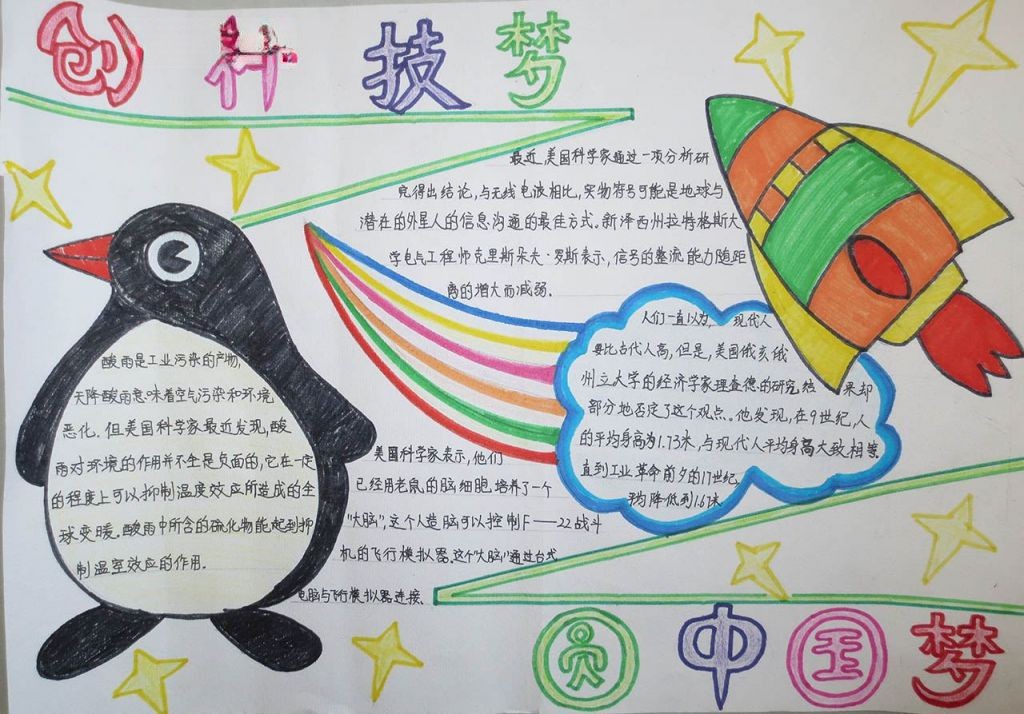 创科技梦
最近,美国科学家通过一项分析研
究得出结论,与无线电波相比,实物符号可能是地球与
潜在的外星人的信息沟通的最佳方式。新泽西州拉特格斯大
学电气工程师克里斯朵夫·罗斯表示,信号的整流能力随距
离的增大而减弱.
人们一直以为, 现代人
要比古代人高,但是,美国俄亥俄
州立大学的经济学家理查德的研究结果却
部分地否定了这个观点。他发现,在9世纪,人
的平均身高为1.73米,与现代人平均身高大致相等
直到工业革命前夕的17世纪
降低到1.67米
酸雨是工业污染的产物,
天降酸雨意味着空气污染和环境
恶化.但美国科学家最近发现,酸
雨对环境的作用并不全是负面的,它在一定
的程度上可以抑制温度效应所造成的全
球变暖.酸雨中所含的硫化物能起到抑
制温室效应的作用.
美国科学家表示,他们
已经用老鼠的脑细胞培养了一个
“大脑”,这个人造脑可以控制F——22战斗
机的飞行模拟器.这个“大脑”通过台式
电脑与飞行模拟器连接.
圆中国梦